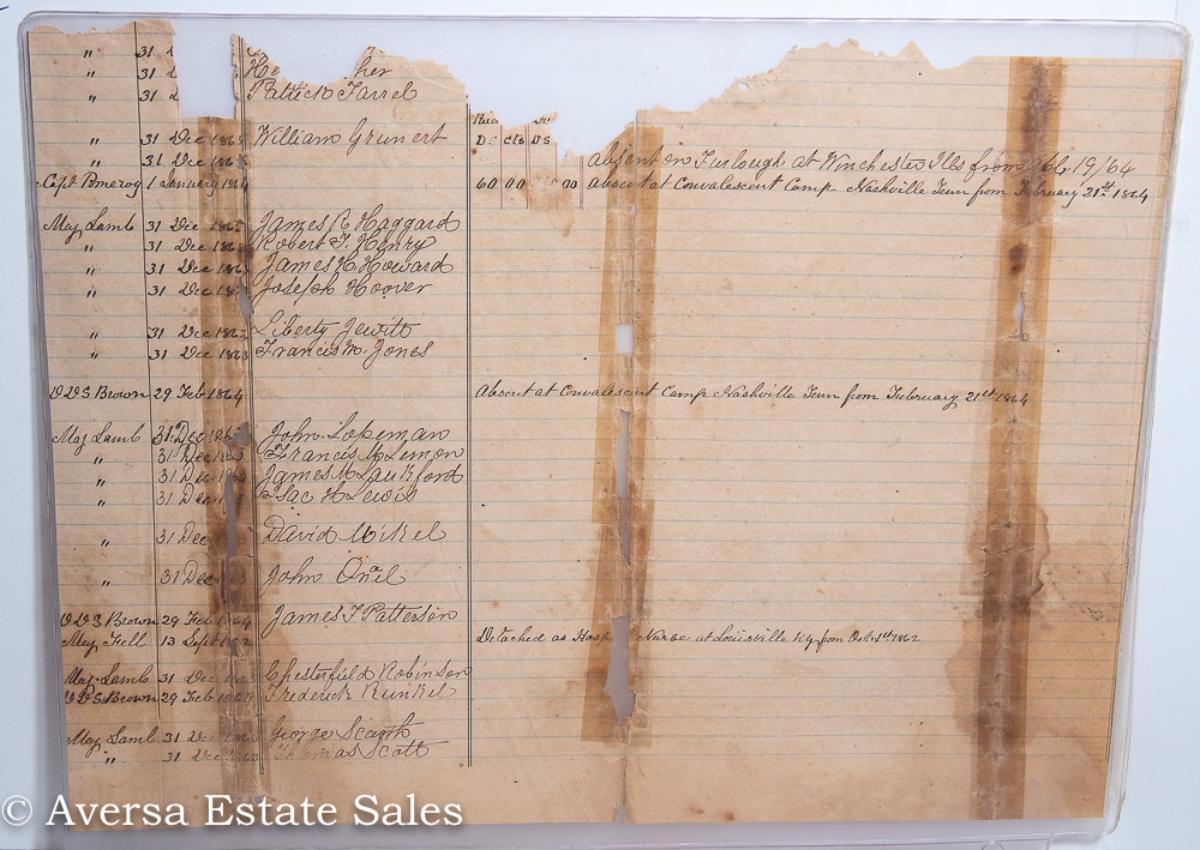 " 31
" 31 her
" 31 Patrick Farrel
" 31 Dec 1863 William Grunert Ds Cts Ds
" 31 Dec 1863 absent on Furlough at Winchester Ills from 19/64
Capt Pomeroy 1 January 1864 60 00 00 Absent at Convalescent Camp Nashville Tenn from February 21st 1864
Maj Lamb 31 Dec 1863 James R Haggard
" 31 Dec 1863 Robert T. Henry
" 31 Dec 1863 James H Howard
" 31 Dec 18 Joseph Hoover
" 31 Dec 1863 Liberty Jewitt
" 31 Dec 1863 Francis M. Jones
V V S Brown 29 Feb 1864 Absent at Convalescent Camp Nashville Tenn from February 21st 1864
Maj Lamb 31 Dec 1863 John Lopeman
" 31 Dec 1863 Francis M Lemon
" 31 Dec 1863 James M Lankford
" 31 Dec Isac H Lewis
" 31 Dec David Mikel
" 31 Dec 63 John Oneil
V V S Brown 29 Feb 1864 James T Patterson
Maj Fell 13 Sept 1862 Detached as Hosp Nurse at Louisville Ky from Oct. 1st 1862
Maj. Lamb 31 Dec 1863 Chesterfield Robinson
V V S Brown 29 Feb 1864 Frederick Runkel
Maj Lamb 31 Dec 1863 George
" 31 Dec 1863 Thomas Scott
© Aversa Estate Sales